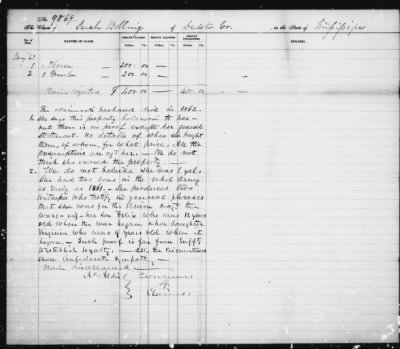 No 9869
The Claim of Sarah Billings of De Soto Co. in the State of Mississippi
NATURE OF CLAIM. AMOUNT CLAIMED. AMOUNT ALLOWED. AMOUNT DISALLOWED. REMARKS.
Dollars. Cts. Dollars. Cts. Dollars. Cts.
1 1 Horse 200.00
2 1 Mule 200.00
Claim rejected $400.00 400.00
The claimant's husband died in 1862.
She says this property belonged to her—
but there is no proof except her general
statement. No details of when she bought
them, of whom, for what price. All the
presumptions are agt her. — We do not
think she owned the property. —
2. We do not believe she was loyal.
She had two sons in the rebel army
as early as 1861. — She produces two
witnesses who testify in general phrases
that she was for the Union & agt the
war — viz: her son Felix who was 12 years
old when the war began & her daughter
Virginia who was 9 years old when it
began. — Such proof is far from sufft
to establish loyalty. — All the circumstances
show Confederate sympathy —
Claim disallowed —
A. O. Aldis Commrs
of
Claims.